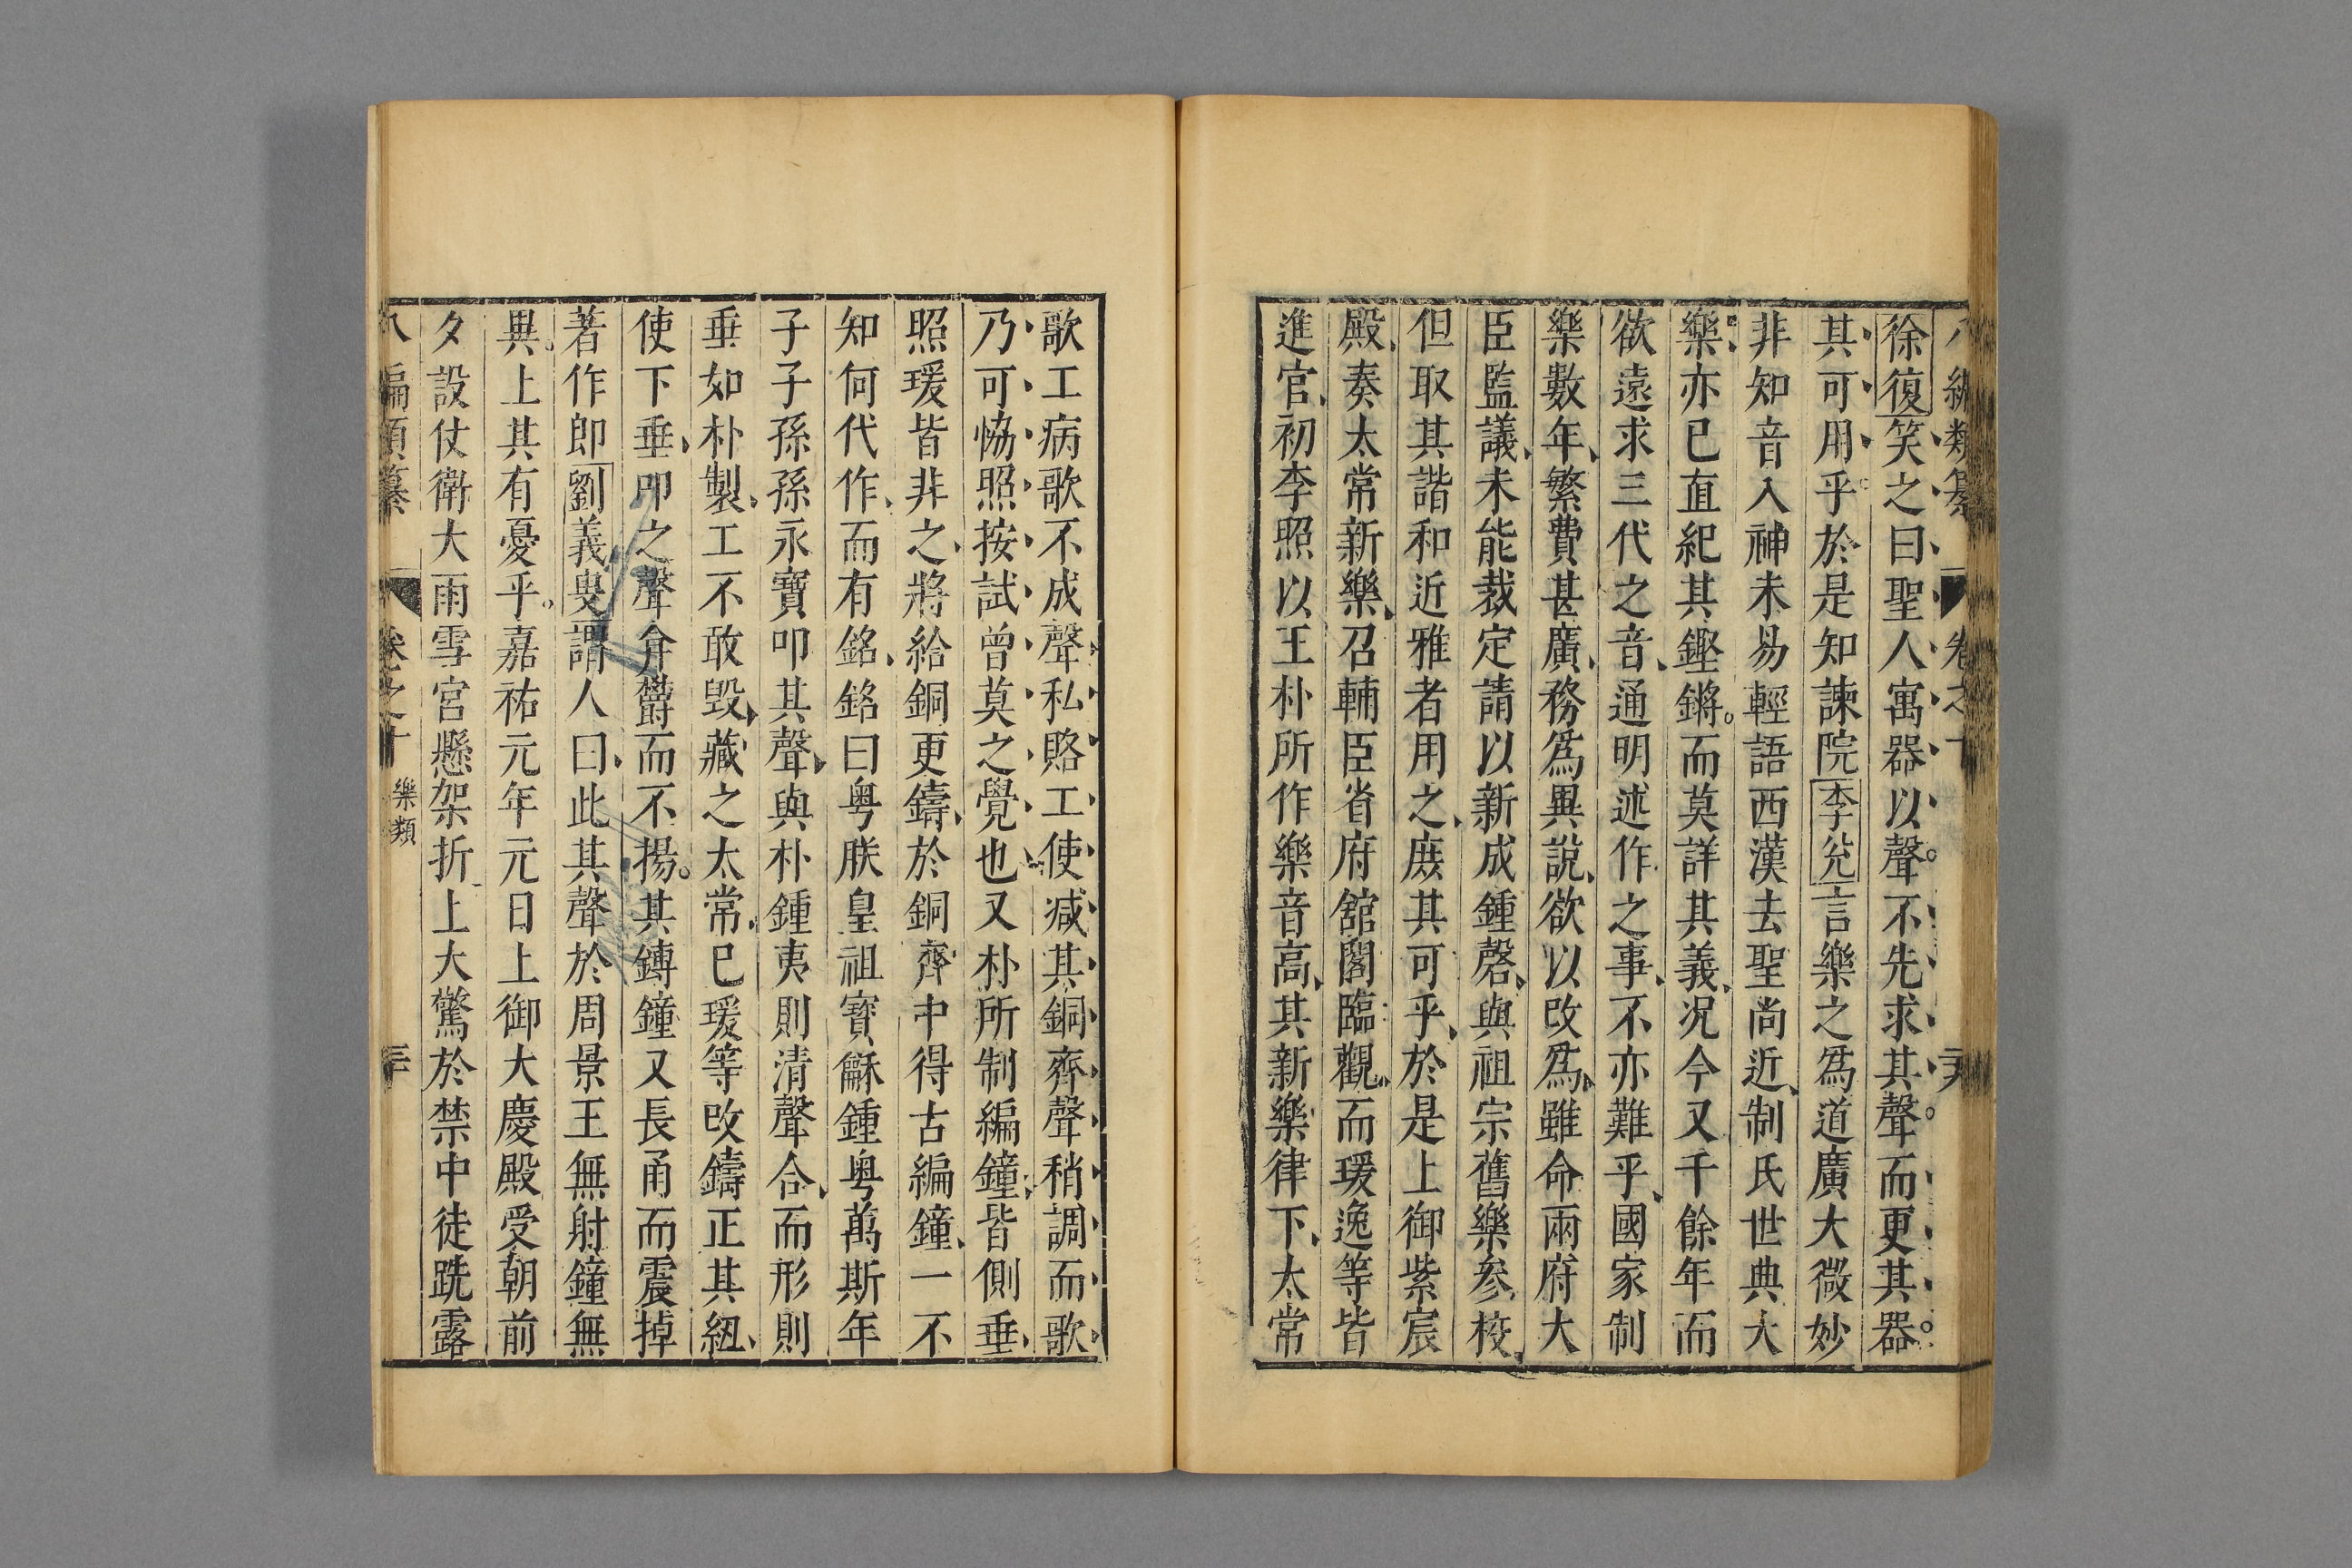 八編類纂 卷之十
徐復笑之曰聖人寓器以聲不先求其聲而更其器
其可用乎於是知諫院李兊言樂之爲道廣大微妙
非知音入神未易輕語西漢去聖尚近制氏世典大
樂亦已直紀其鏗鏘而莫詳其義况今又千餘年而
欲遠求三代之音通明述作之事不亦難乎國家制
樂數年繁費甚廣務爲異說欲以改爲雖命兩府大
臣監議未能裁定請以新成鍾磬與祖宗舊樂參校
但取其諧和近雅者用之庶其可乎於是上御紫宸
殿奏太常新樂召輔臣省府舘閣臨觀而瑗逸等皆
進官初李照以王朴所作樂音高其新樂律下太常
歌工病歌不成聲私賂工使減其銅齊聲稍調而歌
乃可恊照按試曾莫之覺也又朴所制編鐘皆側垂
照瑗皆非之將給銅更鑄於銅齊中得古編鐘一不
知何代作而有銘銘曰粤朕皇祖寶龢鍾粤萬斯年
子子孫孫永寶叩其聲與朴鍾夷則清聲合而形則
垂如朴製工不敢毁藏之太常已瑗等改鑄正其紐
使下垂叩之聲弇欝而不揚其鎛鐘又長甬而震掉
著作郎劉義叟謂人曰此其聲於周景王無射鐘無
異上其有憂乎嘉祐元年元日上御大慶殿受朝前
夕設仗衛大雨雪宮懸架折上大驚於禁中徒跣露
八編類纂 卷之十 樂類 三十